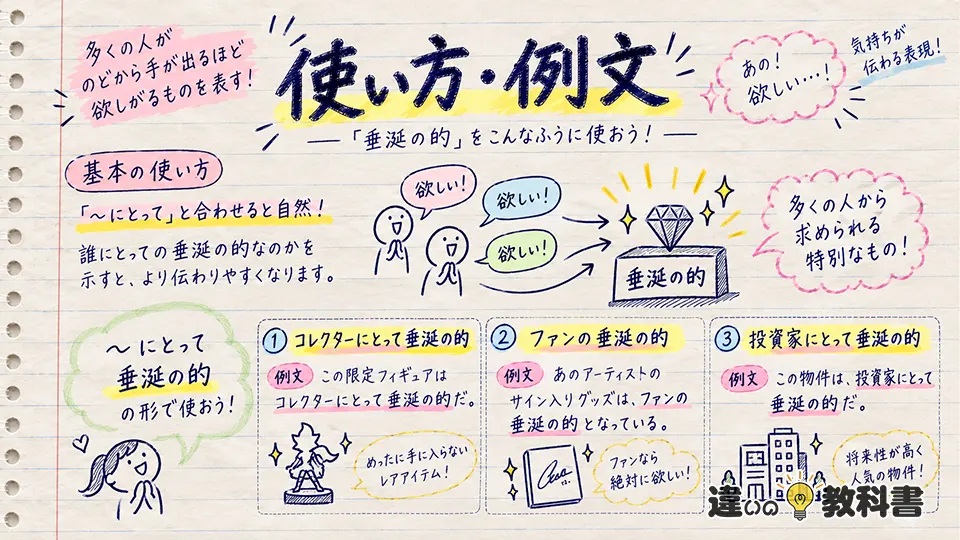 多くの人が
のどから手が出るほど
欲しがるものを表す！
使い方・例文
「垂涎の的」をこんなふうに使おう！
あの！
欲しい…！
気持ちが
伝わる表現！
基本の使い方
「〜にとって」と合わせると自然！
誰にとっての垂涎の的なのかを
示すと、より伝わりやすくなります。
欲しい！
欲しい！
欲しい！
垂涎の的
多くの人から
求められる
特別なもの！
〜にとって
垂涎の的
の形で使おう！
① コレクターにとって垂涎の的
例文 この限定フィギュアは
コレクターにとって垂涎の的だ。
めったに手に入らない
レアアイテム！
② ファンの垂涎の的
例文 あのアーティストの
サイン入りグッズは、ファンの
垂涎の的となっている。
ファンなら
絶対に欲しい！
③ 投資家にとって垂涎の的
例文 この物件は、投資家にとって
垂涎の的だ。
将来性が高く
人気の物件！
違いの教科書